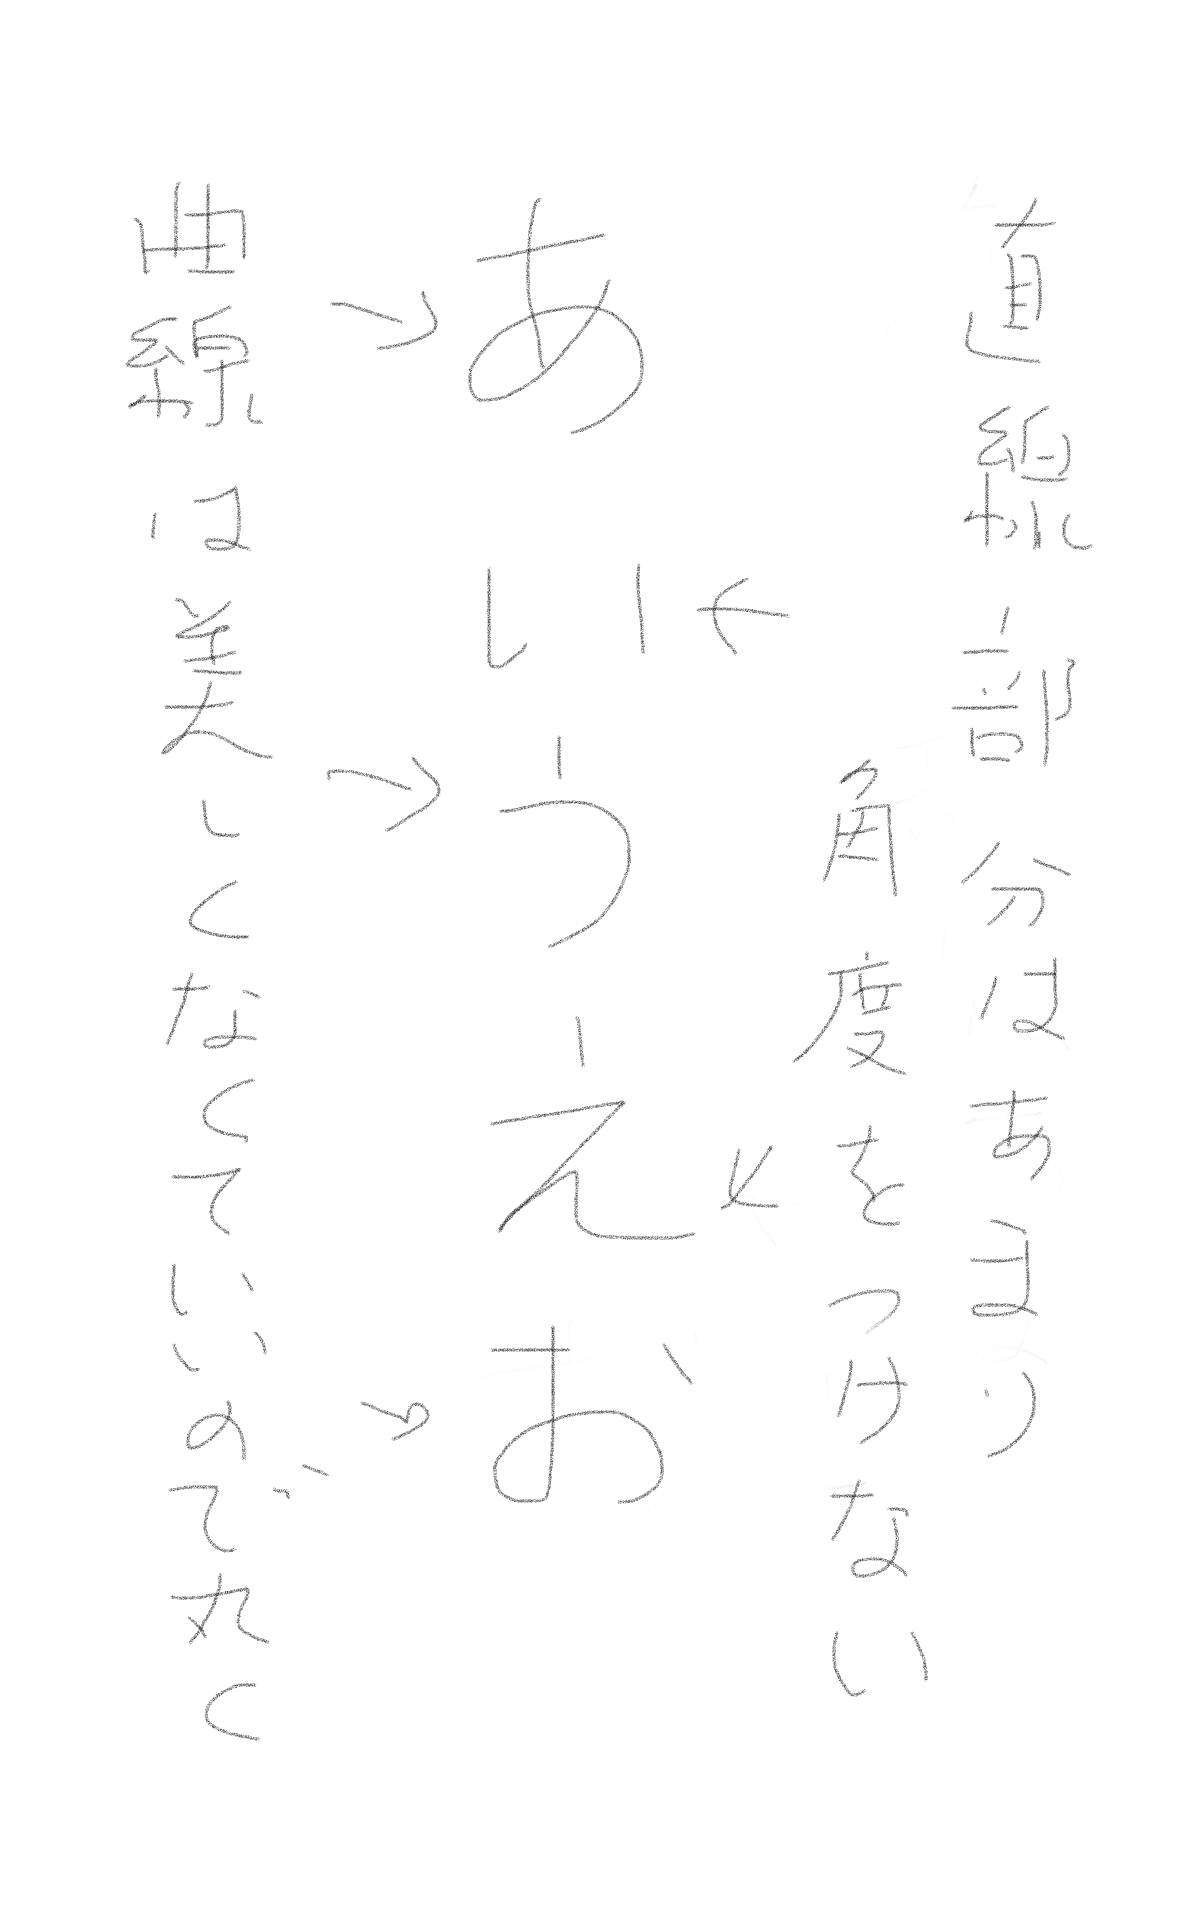 直線部分はあまり
角度をつけない
あいうえお
曲線は美しくなくていいので丸く